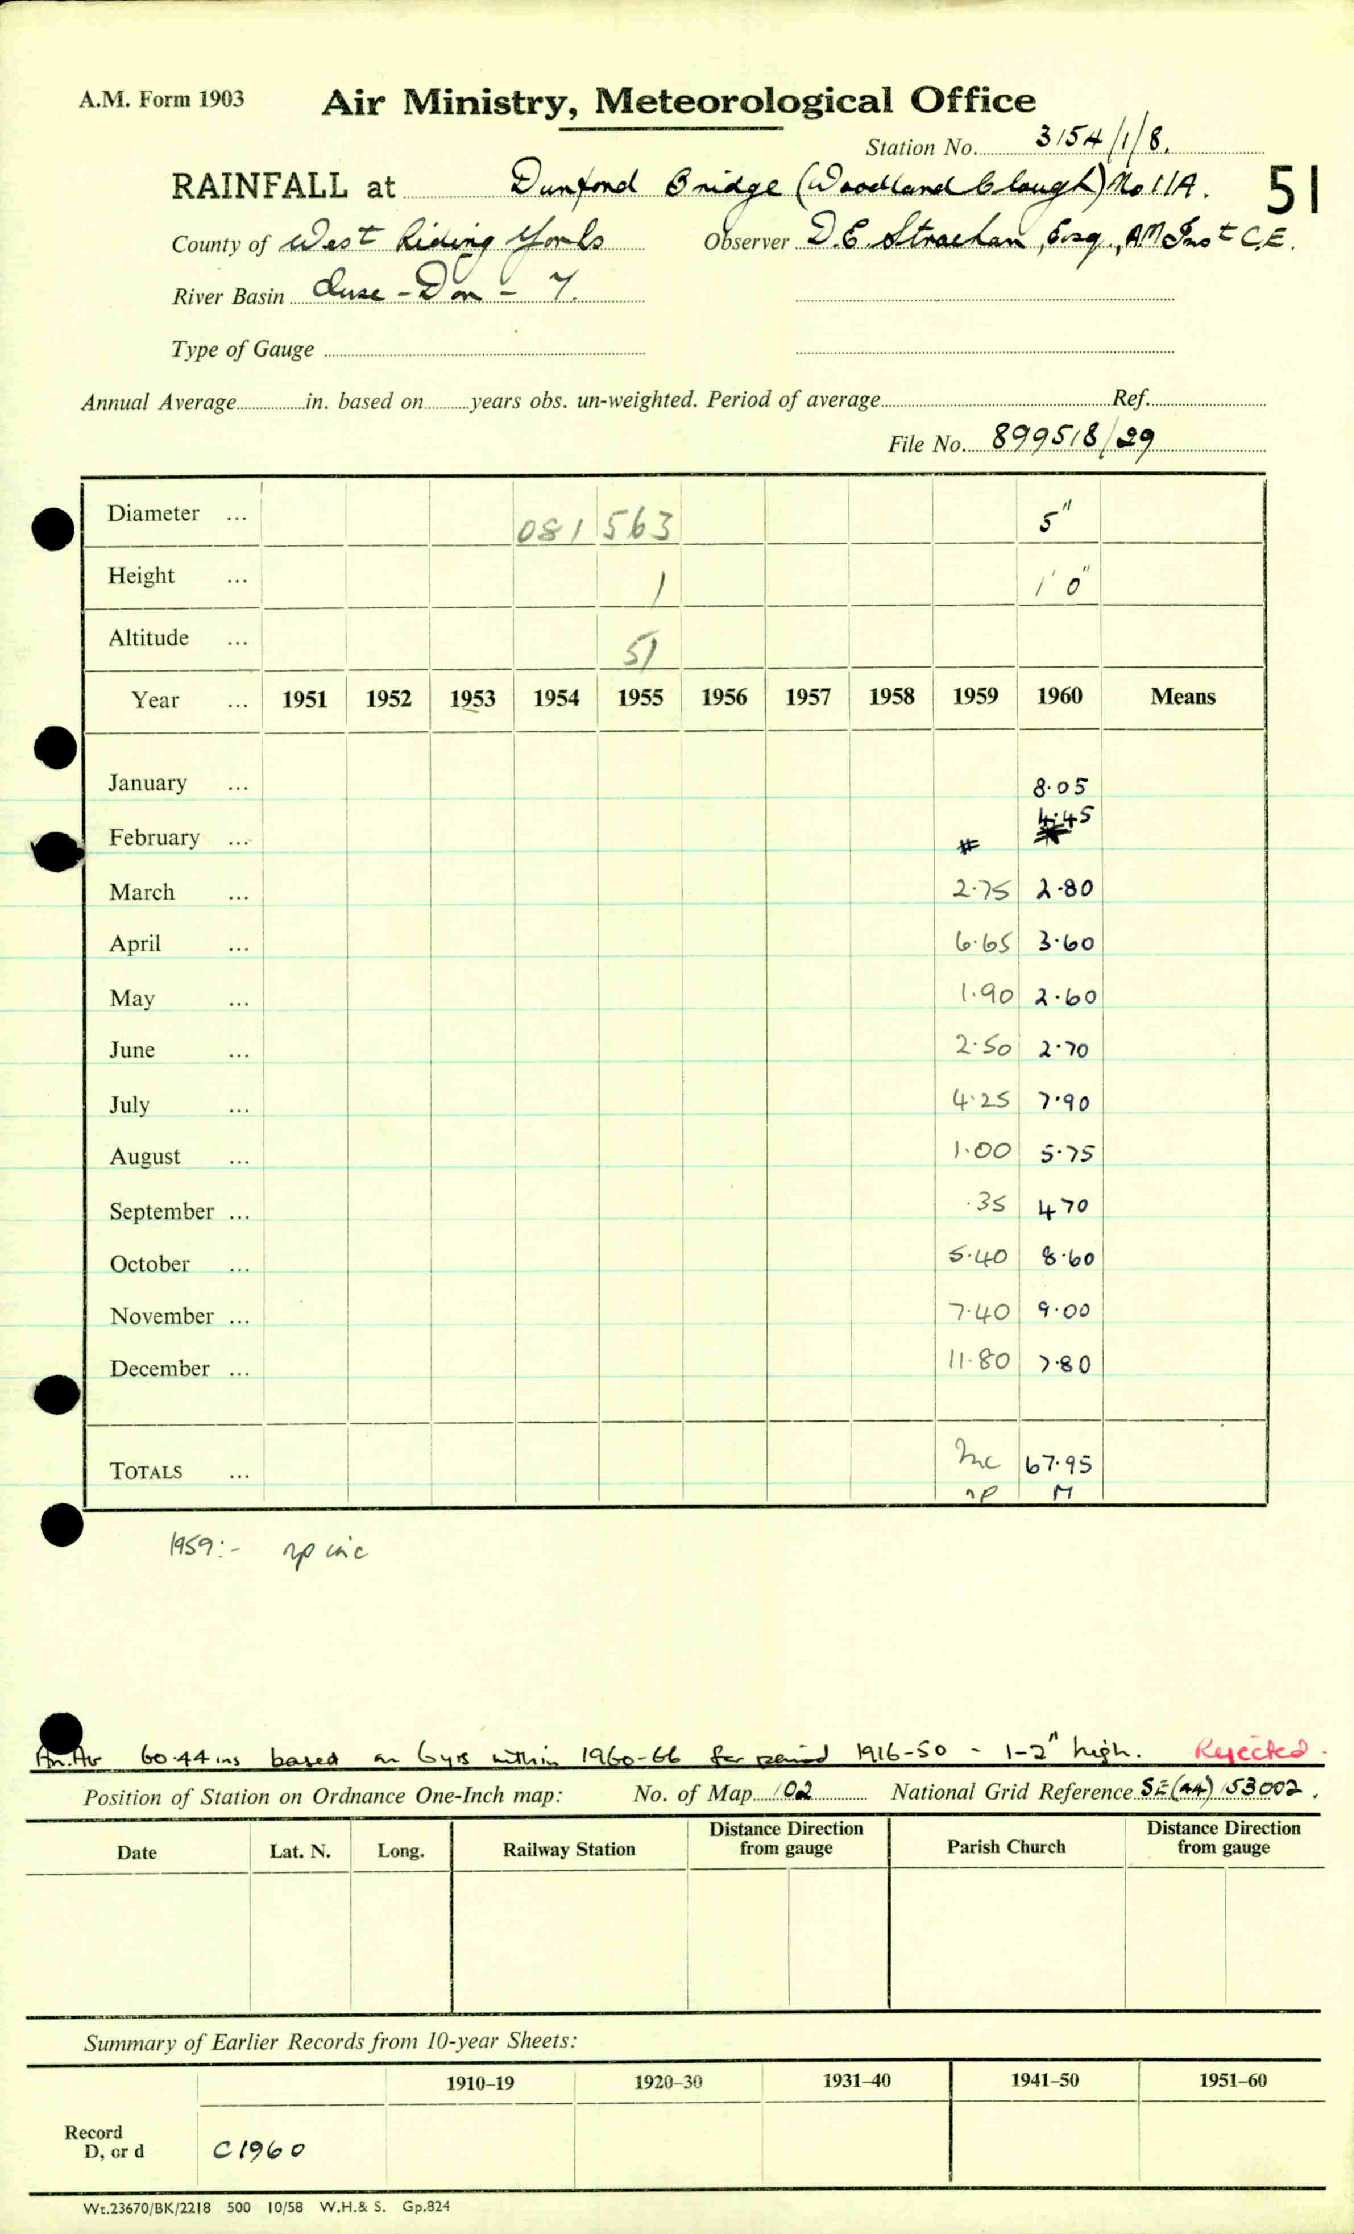 A.M. Form 1903 Air Ministry, Meteorological Office
Station No. 3154/1/8.
RAINFALL at Dunford Bridge (Woodland Clough) No 11A. 51
County of West Riding Yorks Observer D.E. Strachan, Esq., AM Inst C.E.
River Basin Ouse - Don - 7.
Type of Gauge
Annual Average in. based on years obs. un-weighted. Period of average Ref.
File No. 899518/29
Diameter ... 081 563 5"
Height ... 1 1' 0"
Altitude ... 51
Year ... 1951 1952 1953 1954 1955 1956 1957 1958 1959 1960 Means
January ... 8.05
February ... # 4.45
March ... 2.75 2.80
April ... 6.65 3.60
May ... 1.90 2.60
June ... 2.50 2.70
July ... 4.25 7.90
August ... 1.00 5.75
September ... .35 4 70
October ... 5.40 8.60
November ... 7.40 9.00
December ... 11.80 7.80
TOTALS ... Inc 67.95
np M
1959:- np inc
An. Av 60.44 ins based on 6 yrs within 1960-66 for period 1916-50 - 1-2" high. Rejected.
Position of Station on Ordnance One-Inch map: No. of Map 102 National Grid Reference SE(44) 153002.
Date Lat. N. Long. Railway Station Distance Direction from gauge Parish Church Distance Direction from gauge
Summary of Earlier Records from 10-year Sheets:
1910–19 1920–30 1931–40 1941–50 1951–60
Record
D, or d C1960
Wt.23670/BK/2218 500 10/58 W.H.& S. Gp.824